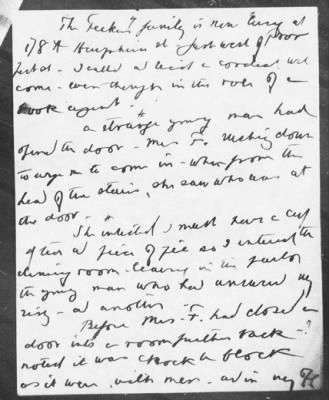 The Feekin family is now living at
178 A Hampshire st just west of Poor
I called at least a cordial wel
come - even though in the role of a
book agent. *
a strange young man had
opened the door - Mrs F. rushing down
to urge me to come in - when from the
head of the stairs, she saw who was at
the door - *
She insisted I must have a cup
of tea and piece of pie so I entered the
dining room - leaving in the parlor
the young man who had answered my
ring - and another
Before Mrs - F. had closed a
door into a room further back - I
noted it was chock a block
as it were, with men - and in my